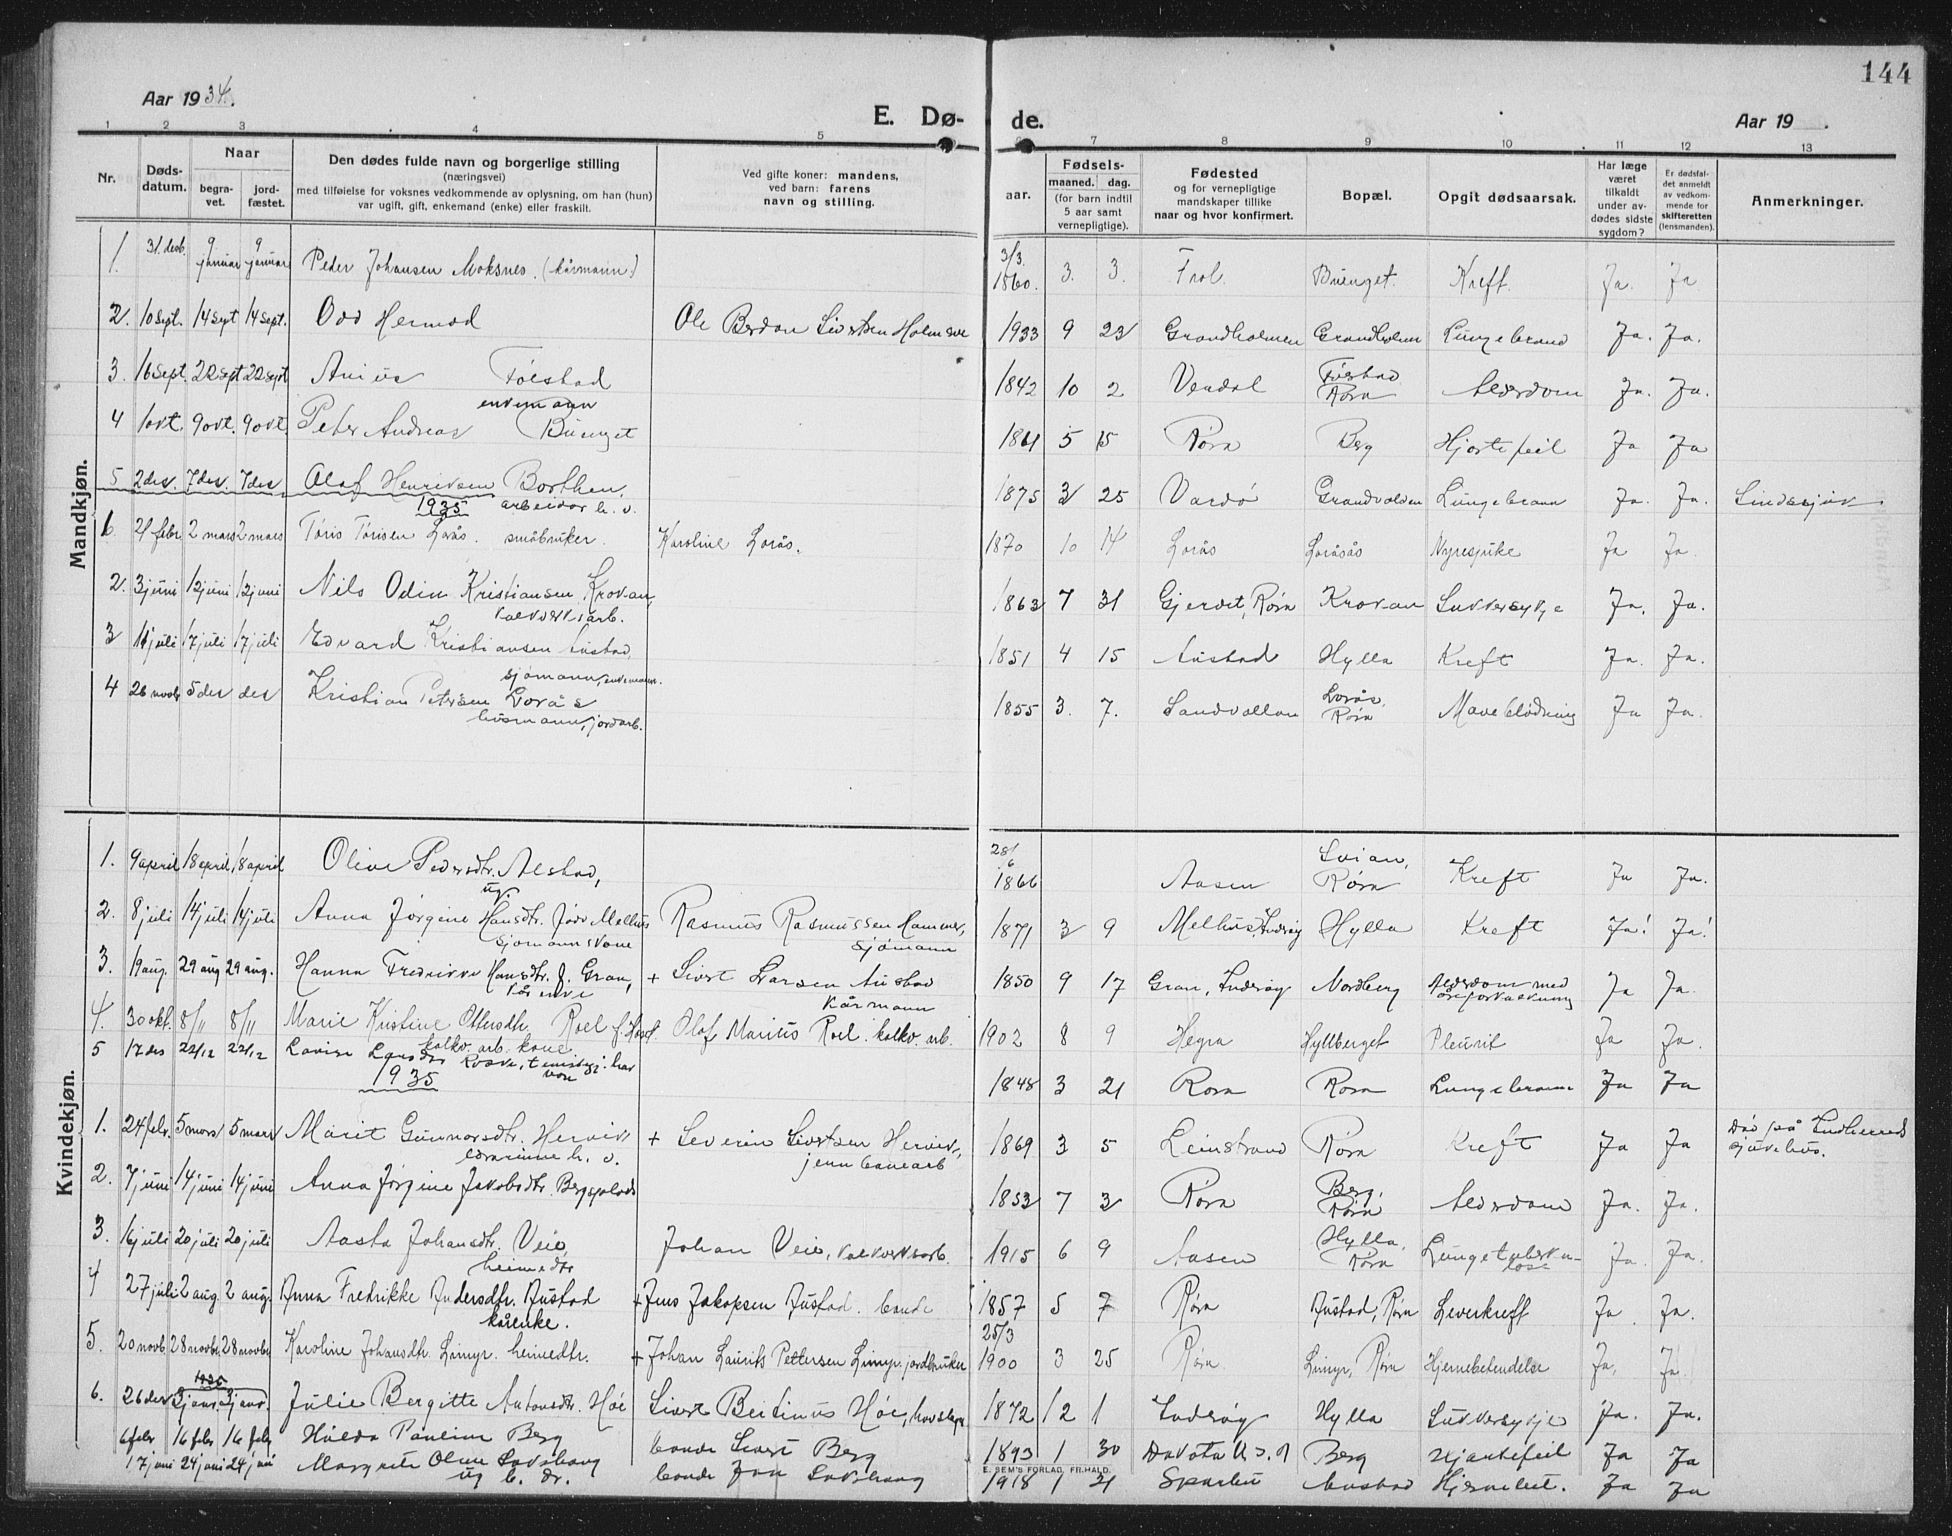 144
Aar 1934.
E. Dø-
de.
Aar 19 .
1 2 3 4 5 6 7 8 9 10 11 12 13
Nr.
Døds-
datum.
Naar
begra-
vet.
jord-
fæstet.
Den dødes fulde navn og borgerlige stilling
(næringsvei)
med tilføielse for voksnes vedkommende av oplysning, om han (hun)
var ugift, gift, enkemand (enke) eller fraskilt.
Ved gifte koner: mandens,
ved barn: farens
navn og stilling.
aar.
Fødsels-
maaned. dag.
(for barn indtil
5 aar samt
vernepligtige).
Fødested
og for vernepligtige
mandskaper tillike
naar og hvor konfirmert.
Bopæl.
Opgit dødsaarsak.
Har læge
været
tilkaldt
under av-
dødes sidste
sygdom?
Er dødsfal-
det anmeldt
av vedkom-
mende for
skifteretten
(lensmanden).
Anmerkninger.
Mandkjøn.
1. 31. desb. 9 januar 9 januar Peder Johansen Moksnes (kårmann.) 3/3 1860. 3. 3. Frol. Buenget. Kreft. Ja. Ja
2. 10 sept. 14 sept 14 sept. Odd Hermod Ole Berdon Sivertsen Holmsve 1933 9 23 Grandholmen Grandholmen Lungebrand Ja. Ja.
3. 16 sept. 22 sept 22 sept Følstad 1842 10 2 Følstad Alderdom Ja. Ja.
enkemann Rørn
4 1 okt. 9 okt. 9 okt. Peter Andreas Buenget 1861 5 15 Rørn Berg Hjertefeil Ja Ja
5 2 des. 7 des. 7 des Olaf Henriksen Borthen, 1875 3 25 Vardø Grandvolden Lungebrann Ja. Ja. Sindssjuk
1935 arbeider h. v.
6 21 febr 2 mars 2 mars Tøris Tørisen Lorås. småbruker. Karoline Lorås. 1870 10 14 Lorås Loråsås Nyresjuke Ja Ja.
2. 3 juni 12 juni 12 juni Nils Odin Kristiansen Krovan, 1863 7 31 Gjerdet, Rørn Krovan Sukkersyke Ja. Ja.
kalkverksarb.
3 11 juli 17 juli 17 juli Edvard Kristiansen Austad 1851 4 15 Austad Hylla Kreft Ja. Ja.
sjømann, enkemann.
4 26 novbr 5 des des Kristian Petersen Lorås 1855 3. 7. Sandvollan Lorås, Maveblødning Ja Ja.
husmann, jordarb. Rørn
Kvindekjøn.
1. 9 april 18 april 18 april Oline Pedersdtr. Alstad, 28/6 1866 Aasen Rørn Kreft Ja Ja.
ug.
2. 8 juli 14 juli 14 juli Anna Jørgine Hansdtr. Født Melhus Rasmus Rasmussen Hammer, 1871 3 9 Melhus, Inderøy Hylla Kreft Ja! Ja!
sjømannskone sjømann
3. 19 aug. 29 aug 29 aug. Hanna Fredrikke Hansdtr. f. Gran, + Sivert Larsen Austad 1850 9 17 Gran, Inderøy Nordberg Alderdom med Ja Ja.
kårenke kårmann åreforkalkning
4. 30 okt. 8/11 8/11 Marie Kristine Ottersdtr. Roel Olaf Marius Roel. kalkv. arb. 1902 8 9 Hegra Hyllberget Pleurit Ja Ja.
kalkv. arb. kone.
5 17 des 22/12 22/12 1848 3 21 Rørn Rørn Lungebrann Ja Ja
1935
1. 24 febr. 5 mars 5 mars Marit Gunnarsdtr. Hervik + Severin Sivertsen Hervik, 1869 3 5 Leinstrand Rørn Kreft Ja Ja Død på Innherred
lærerinne h. v. jernbanearb sjukehus.
2. 7 juni 14 juni 14 juni Anna Jørgine Jakobsdtr. Bergsplads 1853 7 3 Rørn Berg, Alderdom Ja. Ja.
Rørn
3. 16 juli 20 juli 20 juli Aasta Johansdtr. Veie, Johan Veie, kalkverksarb. 1915 6 9 Aasen Hylla, Lungetuberku- Ja. Ja.
heimedtr Rørn lose
4 27 juli 2 aug. 2 aug. Anna Fredrikke Andersdtr. Austad + Jens Jakopsen Austad. bonde 1857 5 7 Rørn Austad, Rørn Leverkreft Ja. Ja.
kårenke.
5. 20 novb. 28 novbr. 28 novbr Karoline Johansdtr. Limyr. heimedtr. + Johan Laurits Pettersen Limyr. jordbruker 25/3 1900 3 25 Rørn. Limyr, Rørn Hjernebetendelse Ja. Ja.
1936
6. 26 des 3 jan. 3 jan. Julie Bergitte Antonsdtr. Høe Sivert Beitinus Høe, 1872 12 1 Inderøy Hylla Sukkersyke Ja. Ja.
6 febr 16 febr 16 febr Hilda Pauline Berg bonde Sivert Berg 1893 1 30 Dakota U.S.A Berg Hjertefeil Ja Ja
17 juni 24 juni 24 juni Margrete Oline bonde Jon 1918 1 21 Sparbu Austad Ja Ja
ug h. dr.
E. SEM'S FORLAG, FR.HALD.